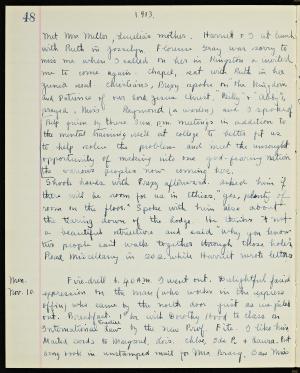 48
1913.
Met Mrs. Miller, Amelia's mother. Harriet & I at lunch
with Ruth in Josselyn. Florence Gray was sorry to
miss me when I called on her in Kingston & invited
me to come again. Chapel, sat with Ruth in her
spoke on the Kingdom
and Patience of our Lord Jesus Christ.
prayed, Miss Raymond (a warden) and I spoke of
help given by these 7 P.M. meetings in addition to
the mental training well at college to better fit us
to help solve the problem and meet the unsought
opportunity of making into one god-fearing nation
the various peoples now coming here.
Shook hands with Prexy afterward. Asked him if
there will be room for us in others, "yes, plenty of
room on the floor." Spoke with him also about
the tearing down of the Lodge. He thinks it not
a beautiful structure and said "why you know
two people can't walk together through those holes
Read Miscellany in 202 while Harriet wrote letters
Mon.
Nov. 10.
Fire drill 6.40 A.M. I went out. Delightful facial
expression on the man, who works in the express
office, who came by the north door just as we filed
out. Breakfast. 1st hr. with Dorothy Hood to class in
International Law by the new Prof. Fite. I like him.
Mailed cards to Maynard, Lois, Chloe, & Laura. Put
in unstamped mail for Ma Bracq. Saw Miss